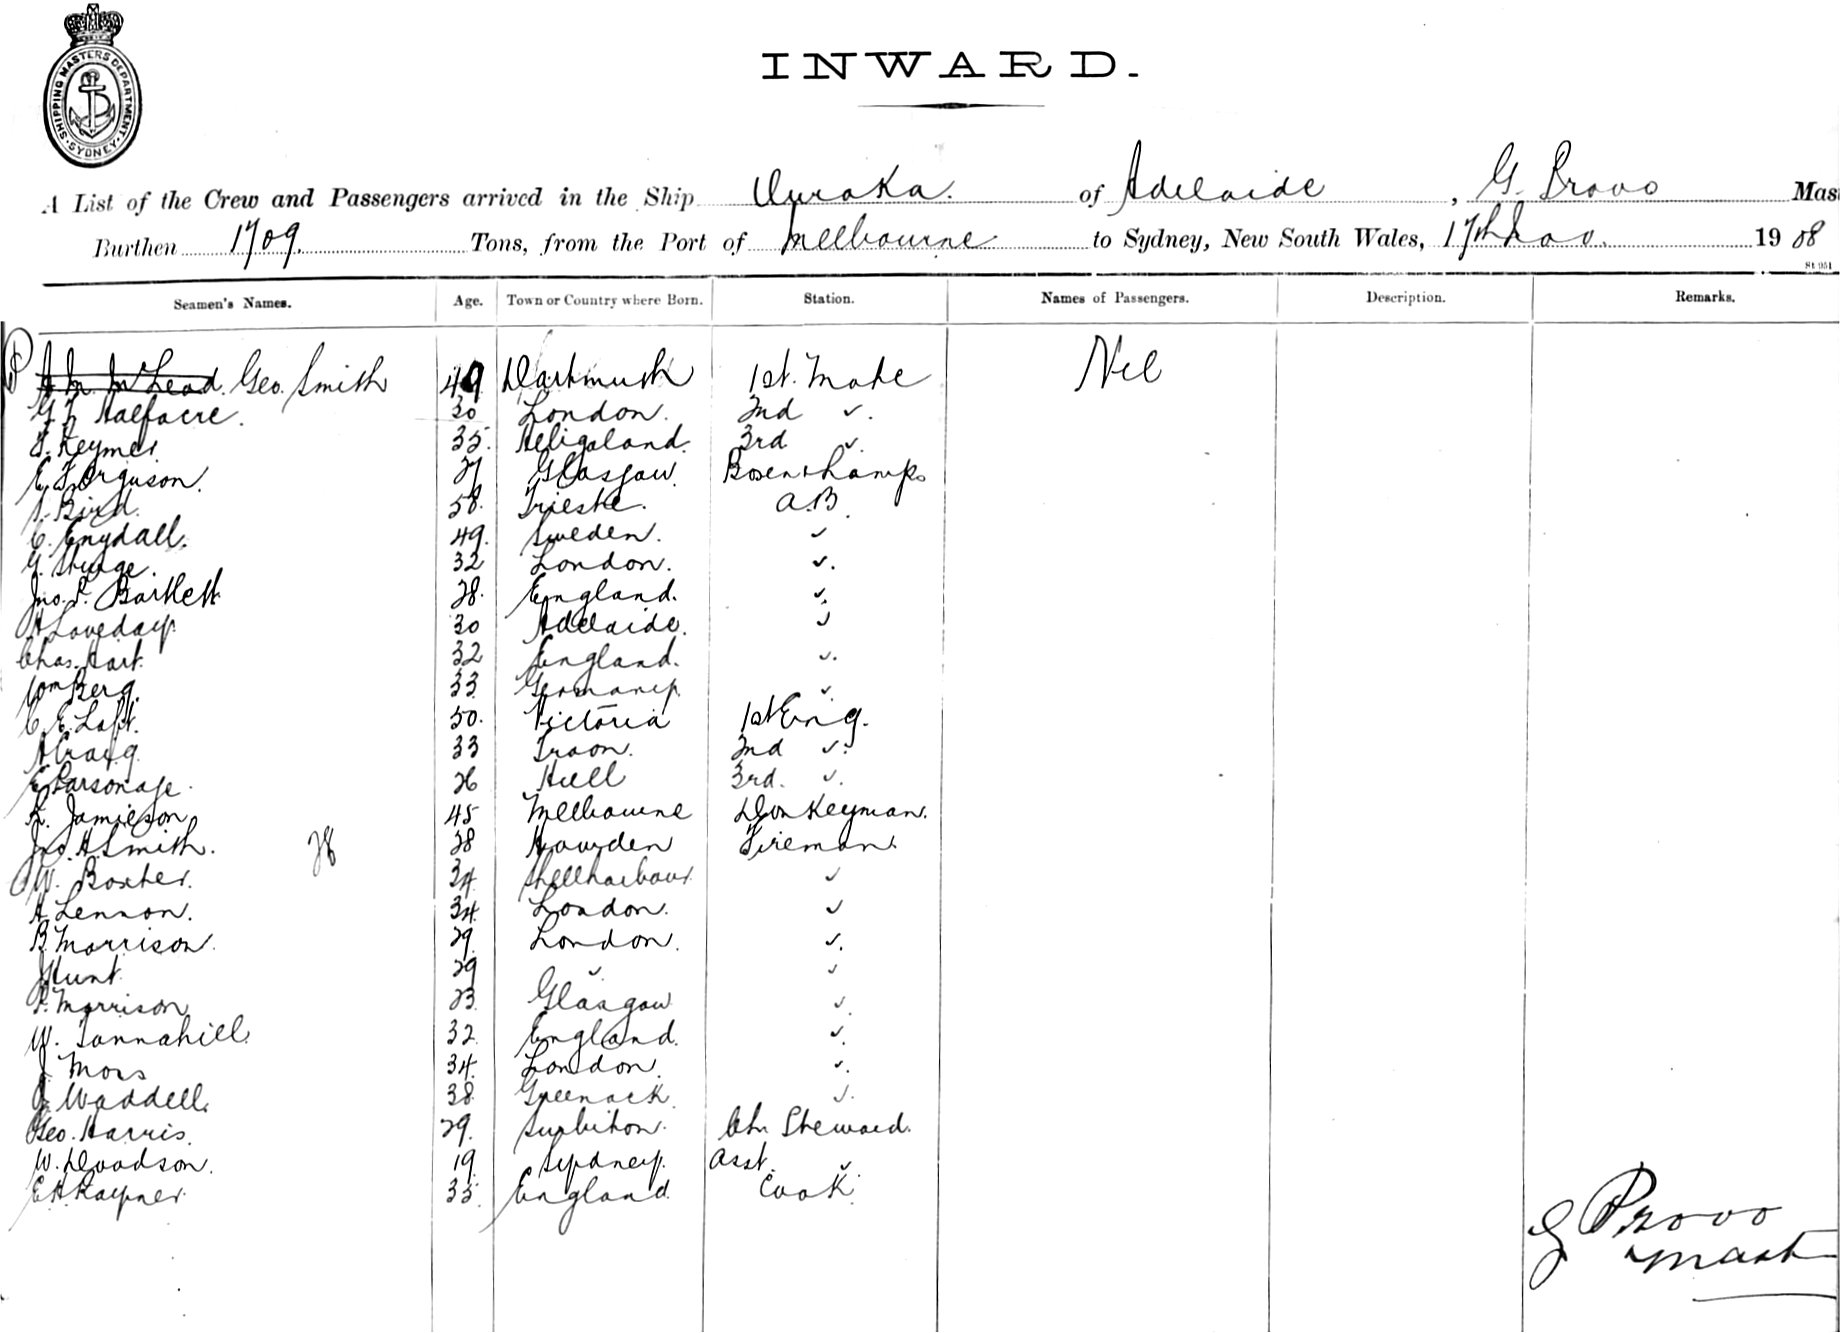 SHIPPING MASTERS DEPARTMENT · SYDNEY ·
INWARD.
A List of the Crew and Passengers arrived in the Ship Ouraka. of Adelaide, G. Provo Mas
Burthen 1709. Tons, from the Port of Melbourne to Sydney, New South Wales, 17th Nov. 1908
St 951
Seamen's Names. Age. Town or Country where Born. Station. Names of Passengers. Description. Remarks.
Geo. Smith 49 Dartmuth 1st. Mate Nil
Halfacre. 30 London. 2nd ✓.
Keymer. 35. Heligoland. 3rd ✓.
E. Ferguson. 27 Glasgow. Bosen & Lamps
Bird. 58. Trieste. A.B.
C. Engdall. 49. Sweden. ✓
G. Sturge. 32 London. ✓.
Jno. P. Bartlett 28. England. ✓.
A Loveday. 30 Adelaide. ✓
Chas. Hart. 32 England. ✓.
Wm Berg. 33 Germany. ✓.
C. E. Loft. 50. Victoria 1st Eng.
A Craig. 33 Troon. 2nd ✓.
E Parsonage. 26 Hull 3rd. ✓.
R. Jamieson. 45 Melbourne Donkeyman.
Jno. H. Smith. 28 28 Howden Fireman.
W. Boxter. 34 Shellharbour ✓
A Lennon. 34. London. ✓
B. Morrison. 29. London. ✓.
J Hunt. 29 ✓ ✓
Morrison 23. Glasgow ✓.
W. Tannahill. 32 England. ✓.
J Moss 34. London. ✓.
J. Waddell. 38 Greenock. ✓.
Geo. Harris. 29. Surbiton. Ch. Steward.
W. Doodson. 19. Sydney. Asst. ✓
E H Rayner. 33. England. Cook.
G Provo
Mast